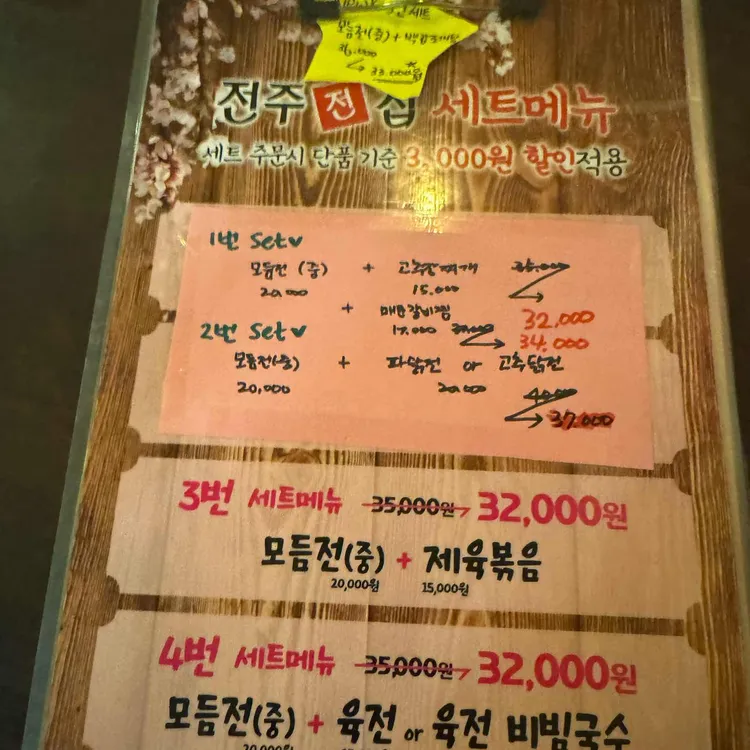 모듬전(중) + 백합
36,000
33.000원
전주 전 집 세트메뉴
세트 주문시 단품 기준 3,000원 할인적용
1번 Set♥
모듬전 (중) + 고추전찌개 35,000
20,000 15.000
+ 매운갈비찜 32,000
17.000 37,000 → 34.000
2번 Set♥
모듬전(중) + 파닭전 or 고추닭전
20,000 20,000 40,000
→ 37.000
3번 세트메뉴 35,000원 → 32,000원
모듬전(중) + 제육볶음
20,000원 15,000원
4번 세트메뉴 35,000원 → 32,000원
모듬전(중) + 육전 or 육전 비빔국수
20,000원